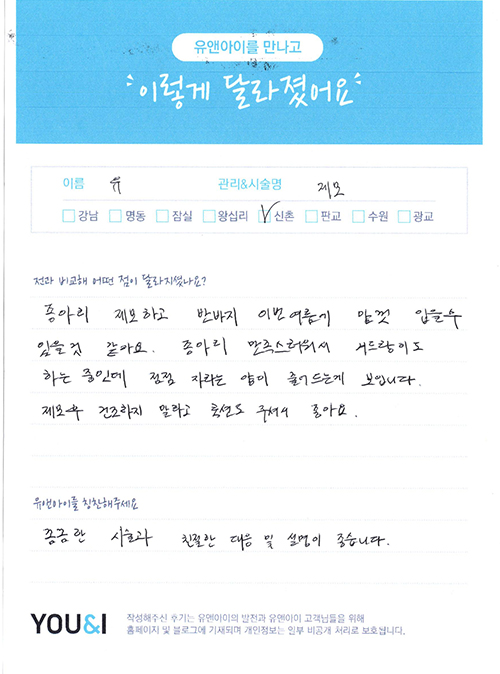 유앤아이를 만나고
이렇게 달라졌어요
이름 유 관리&시술명 제모
강남 명동 잠실 왕십리 신촌 판교 수원 광교
전과 비교해 어떤 점이 달라지셨나요?
종아리 제모하고 반바지 이번여름에 맘껏 입을수
있을것 같아요. 종아리 만족스러워서 겨드랑이도
하는 중인데 점점 자라는 양이 줄어드는게 보입니다.
제모후 건조하지 말라고 로션도 주셔서 좋아요.
유앤아이를 칭찬해주세요
꼼꼼한 시술과 친절한 대응 및 설명이 좋습니다.
YOU&I 작성해주신 후기는 유앤아이의 발전과 유앤아이 고객님들을 위해
홈페이지 및 블로그에 기재되며 개인정보는 일부 비공개 처리로 보호됩니다.